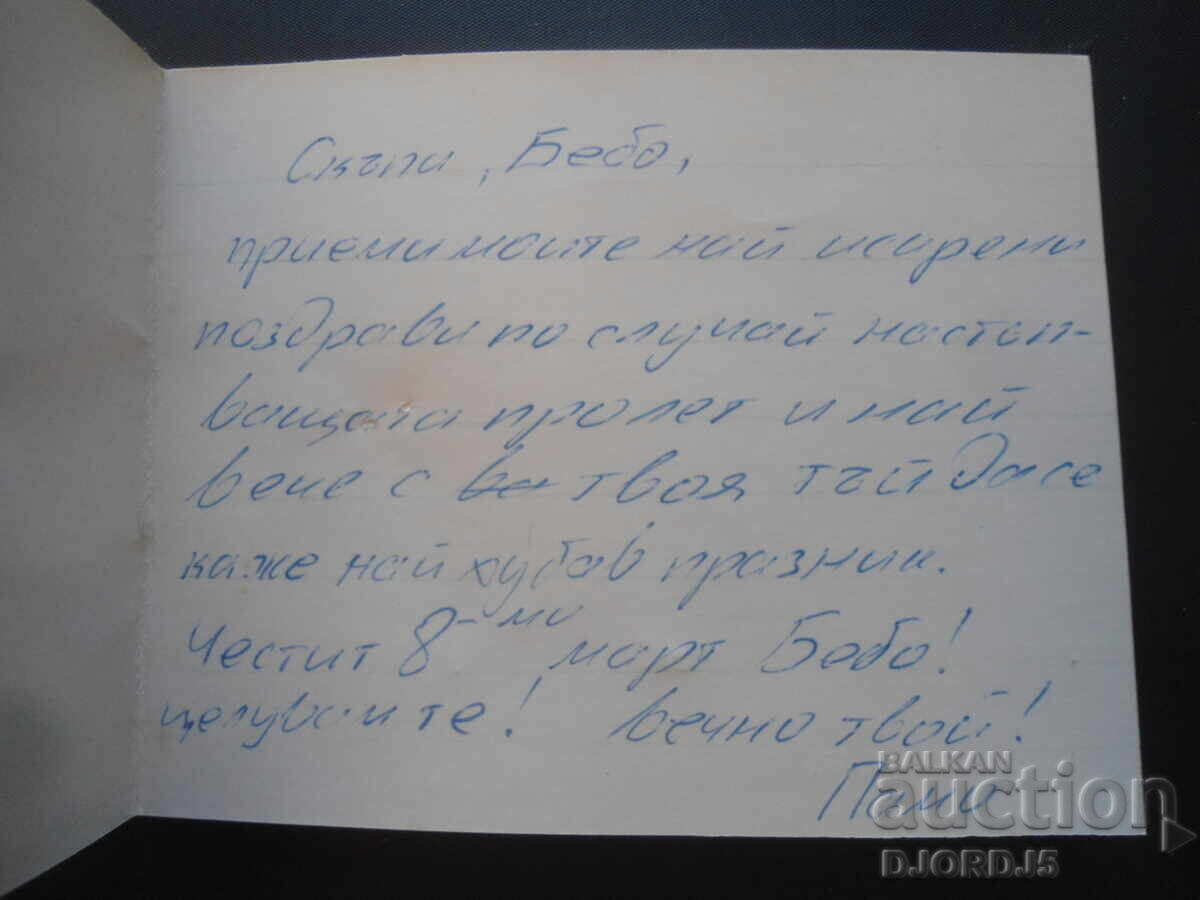 Скъпи, Бебо,
приеми моите най искрени
поздрави по случай настъп-
ващата пролет и най
вече с твоя тъй да се
каже най хубав празник.
Честит 8-ми март Бебо!
целувам те! вечно твой!
BALKAN
auction
DJORDJ5